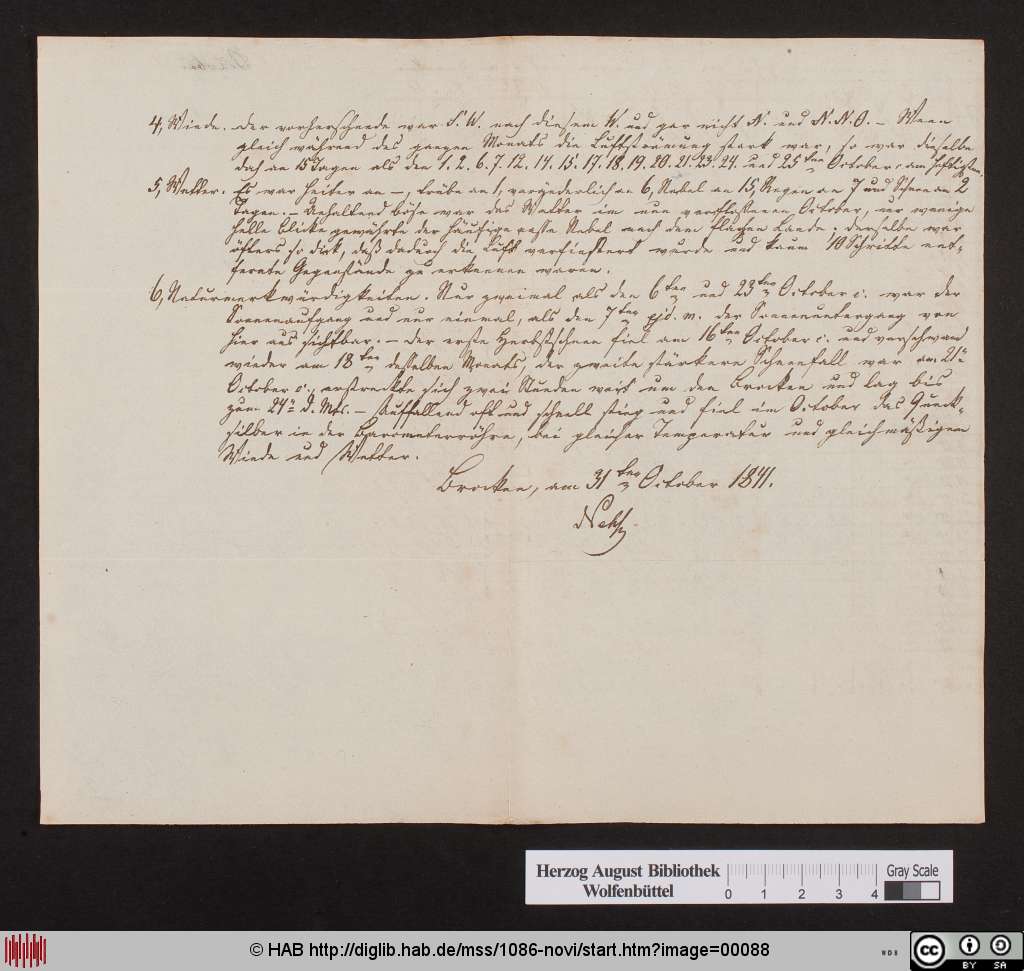 4, Winde. Der vorherschende war S.W. nach diesem W. und gar nicht N. und N.N.O. – Wenn
gleich während des ganzen Monats die Luftströmung stark war, so war dieselbe
doch an 15 Tagen als den 1. 2. 6. 7. 12. 14. 15. 17. 18. 19. 20. 21. 23. 24. und 25ten October am heftigsten.
5, Wetter. Es war heiter an –, trübe an 1, veränderlich an 6, Nebel an 15, Regen an 7 und Schnee an 2
Tagen. – Anhaltend böse war das Wetter im nun verflossenen October, nur wenige
helle Blicke gewährte der häufige nasse Nebel nach dem flachen Lande; derselbe war
öfters so dick, daß dadurch die Luft verfinstert wurde und kaum 10 Schritte ent-
fernte Gegenstände zu erkennen waren.
6, Naturmerkwürdigkeiten. Nur zweimal als den 6ten und 23ten October c. war der
Sonnenaufgang und nur einmal, als den 7ten ejd. m. der Sonnenuntergang von
hier aus sichtbar. – Der erste Herbstschnee fiel am 16ten October c. und verschwand
wieder am 18ten desselben Monats, der zweite stärkere Schneefall war am 21n
October c., erstreckte sich zwei Stunden weit um den Brocken und lag bis
zum 24n d. Mts. – Auffallend oft und schnell stieg und fiel im October das Queck-
silber in der Barometerröhre, bei gleicher Temperatur und gleichmäßigen
Winde und Wetter.
Brocken, am 31ten October 1841.
Nehse
Herzog August Bibliothek
Wolfenbüttel
0 1 2 3 4
Gray Scale
© HAB http://diglib.hab.de/mss/1086-novi/start.htm?image=00088
WDB
cc BY SA